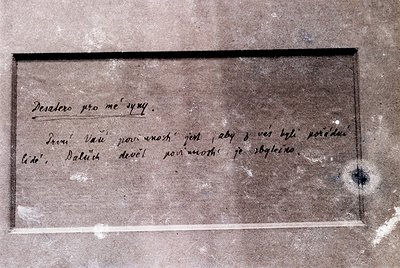 Desatero pro mé syny.
První Vaší povinností jest, aby z vás byli pořádní
lidé. Dalších devět povinností je zbytečno.